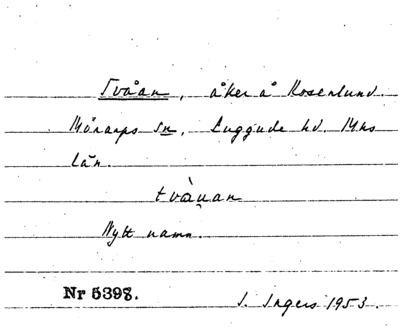 Tvåan, åker å Rosenlund.
Mörarps sn, Luggude hd. Mhs
län.
tvàu̯an
Nytt namn.
Nr 5398. I. Ingers 1953.